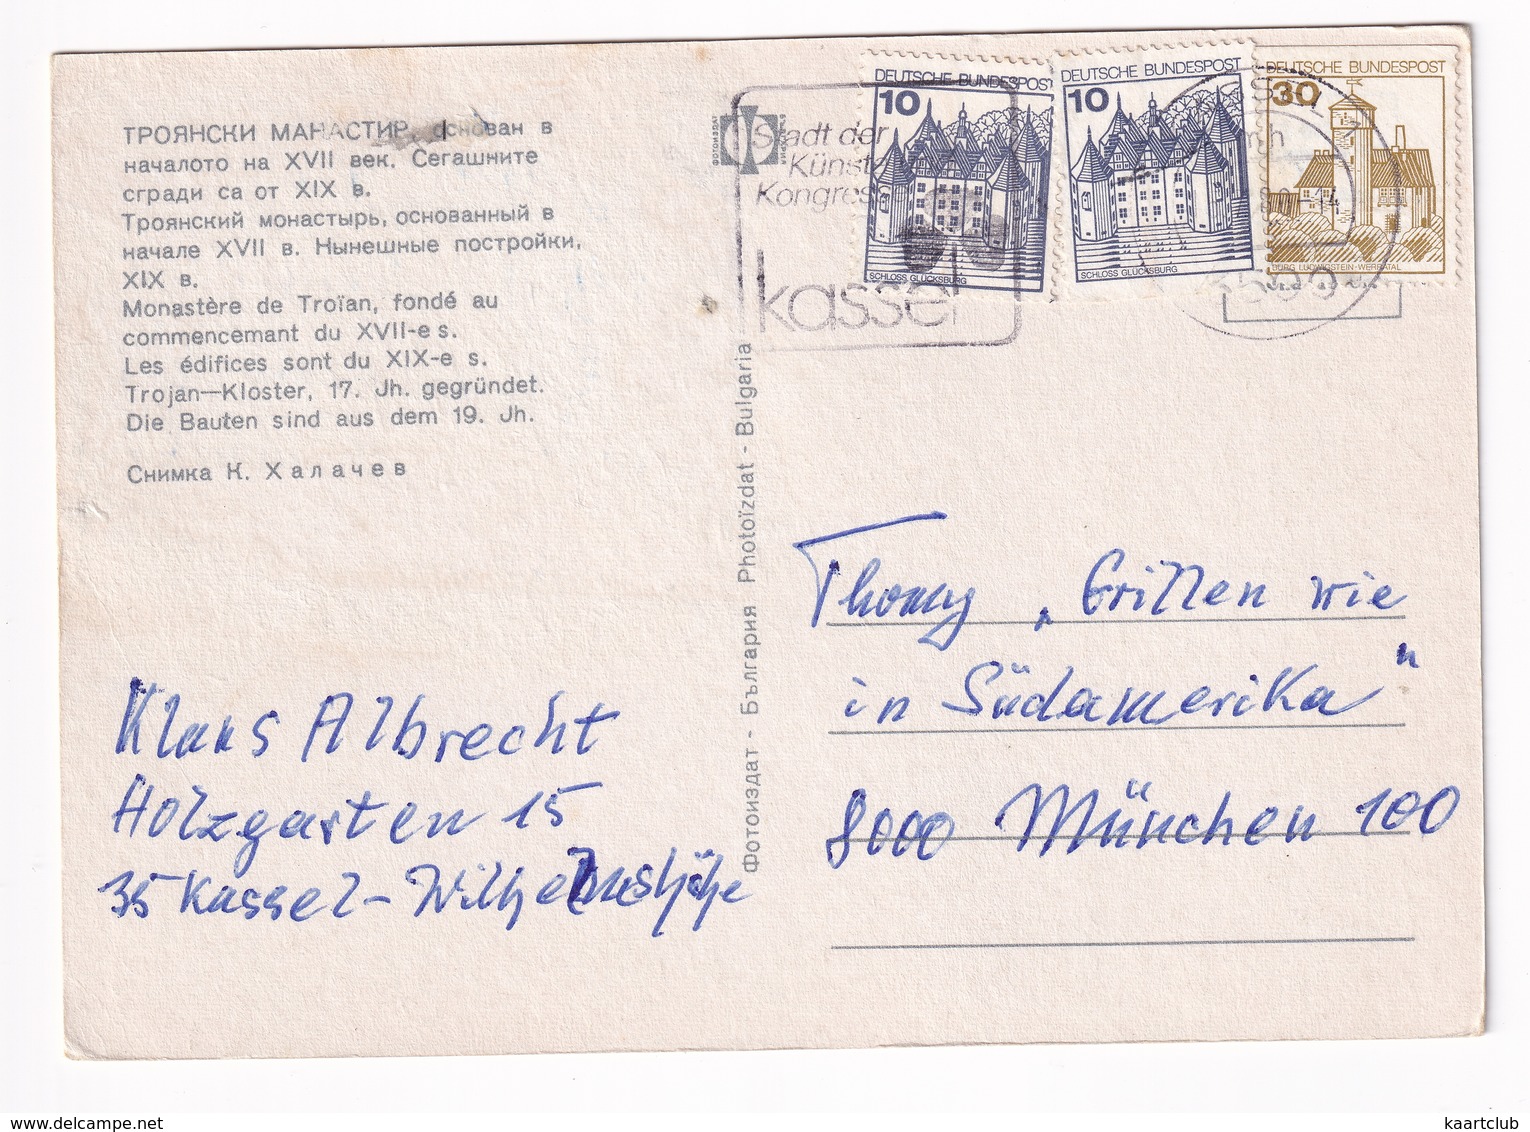 ТРОЯНСКИ МАНАСТИР, основан в
началото на XVII век. Сегашните
сгради са от XIX в.
Троянский монастырь, основанный в
начале XVII в. Нынешные постройки,
XIX в.
Monastère de Troïan, fondé au
commencemant du XVII-e s.
Les édifices sont du XIX-e s.
Trojan—Kloster, 17. Jh. gegründet.
Die Bauten sind aus dem 19. Jh.
Снимка К. Халачев
Klaus Albrecht
Holzgarten 15
35 Kassel-Wilhelmshöhe
Фотоиздат - България Photoïzdat - Bulgaria
ФОТОИЗДАТ
Stadt der
Künste
Kongresse
kassel
DEUTSCHE BUNDESPOST
10
SCHLOSS GLÜCKSBURG
DEUTSCHE BUNDESPOST
10
SCHLOSS GLÜCKSBURG
DEUTSCHE BUNDESPOST
30
BURG LUDWIGSTEIN-WERRATAL
3500
Thomy „Grillen wie
in Südamerika"
8000 München 100
www.delcampe.net
kaartclub